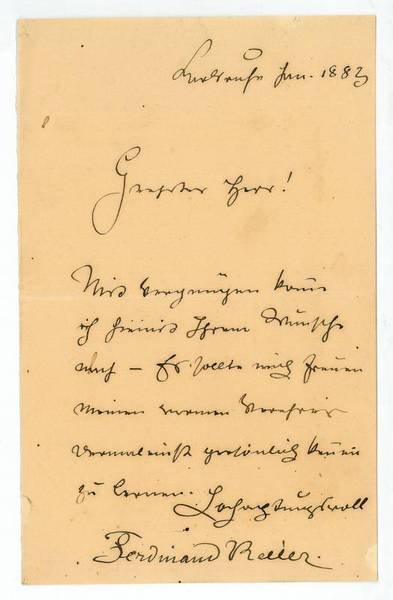 Karlsruhe Jan. 1883
Geehrter Herr!
Mit Vergnügen komme
ich hiemit Ihrem Wunsche
nach – Es sollte mich freuen
meinen warmen Verehrer
dermaleinst persönlich kennen
zu lernen. Hochachtungsvoll
Ferdinand Keller.